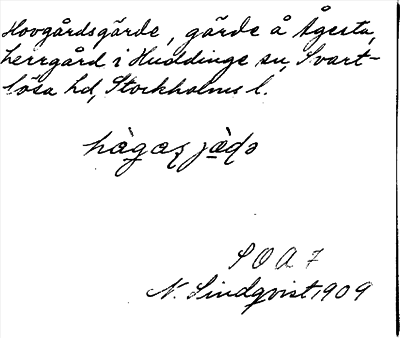 Hovgårdsgärde, gärde å Ågesta,
herrgård i Huddinge sn, Svart-
lösa hd, Stockholms l.
S O A 7
N. Lindqvist 1909